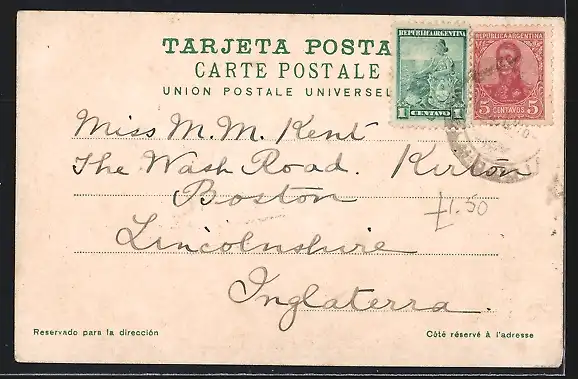 TARJETA POSTA
CARTE POSTALE
UNION POSTALE UNIVERSEL
REPÚBLICA ARGENTINA
1 CENTAVO 1
REPUBLICA ARGENTINA
5 CENTAVOS 5
Miss M. M. Kent
The Wash Road. Kirton
Boston
£1.50
Lincolnshire
Inglaterra.
Reservado para la dirección
Côté réservé à l'adresse